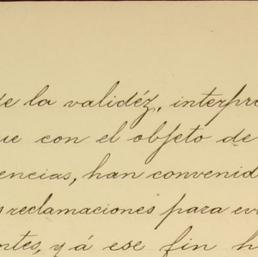 de la validéz, interpre
ue con el objeto de
encias, han convenid
s reclamaciones para ev
ntes, y á ese fin h